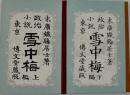 末廣鐵腸居士著
政治小説
雪中梅 上編
東京 博文堂藏版
末廣鐵腸居士著
政治小説
雪中梅 下編
東京 博文堂藏版